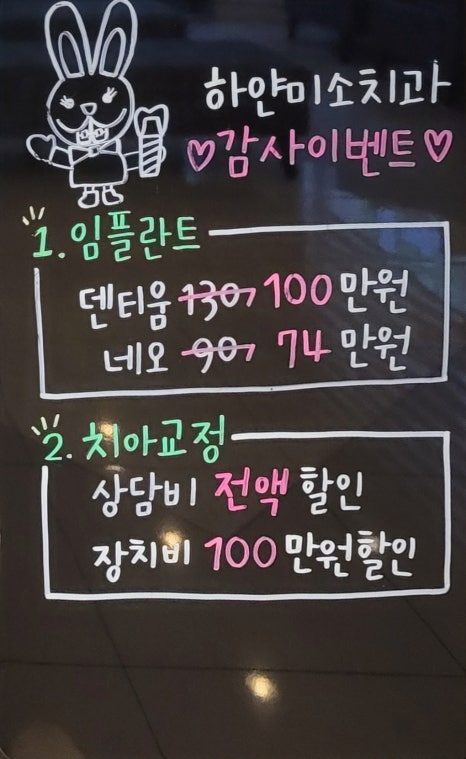 하얀미소치과
♡감사이벤트♡
1. 임플란트
덴티움 130, 100만원
네오 90, 74만원
2. 치아교정
상담비 전액 할인
장치비 100만원할인